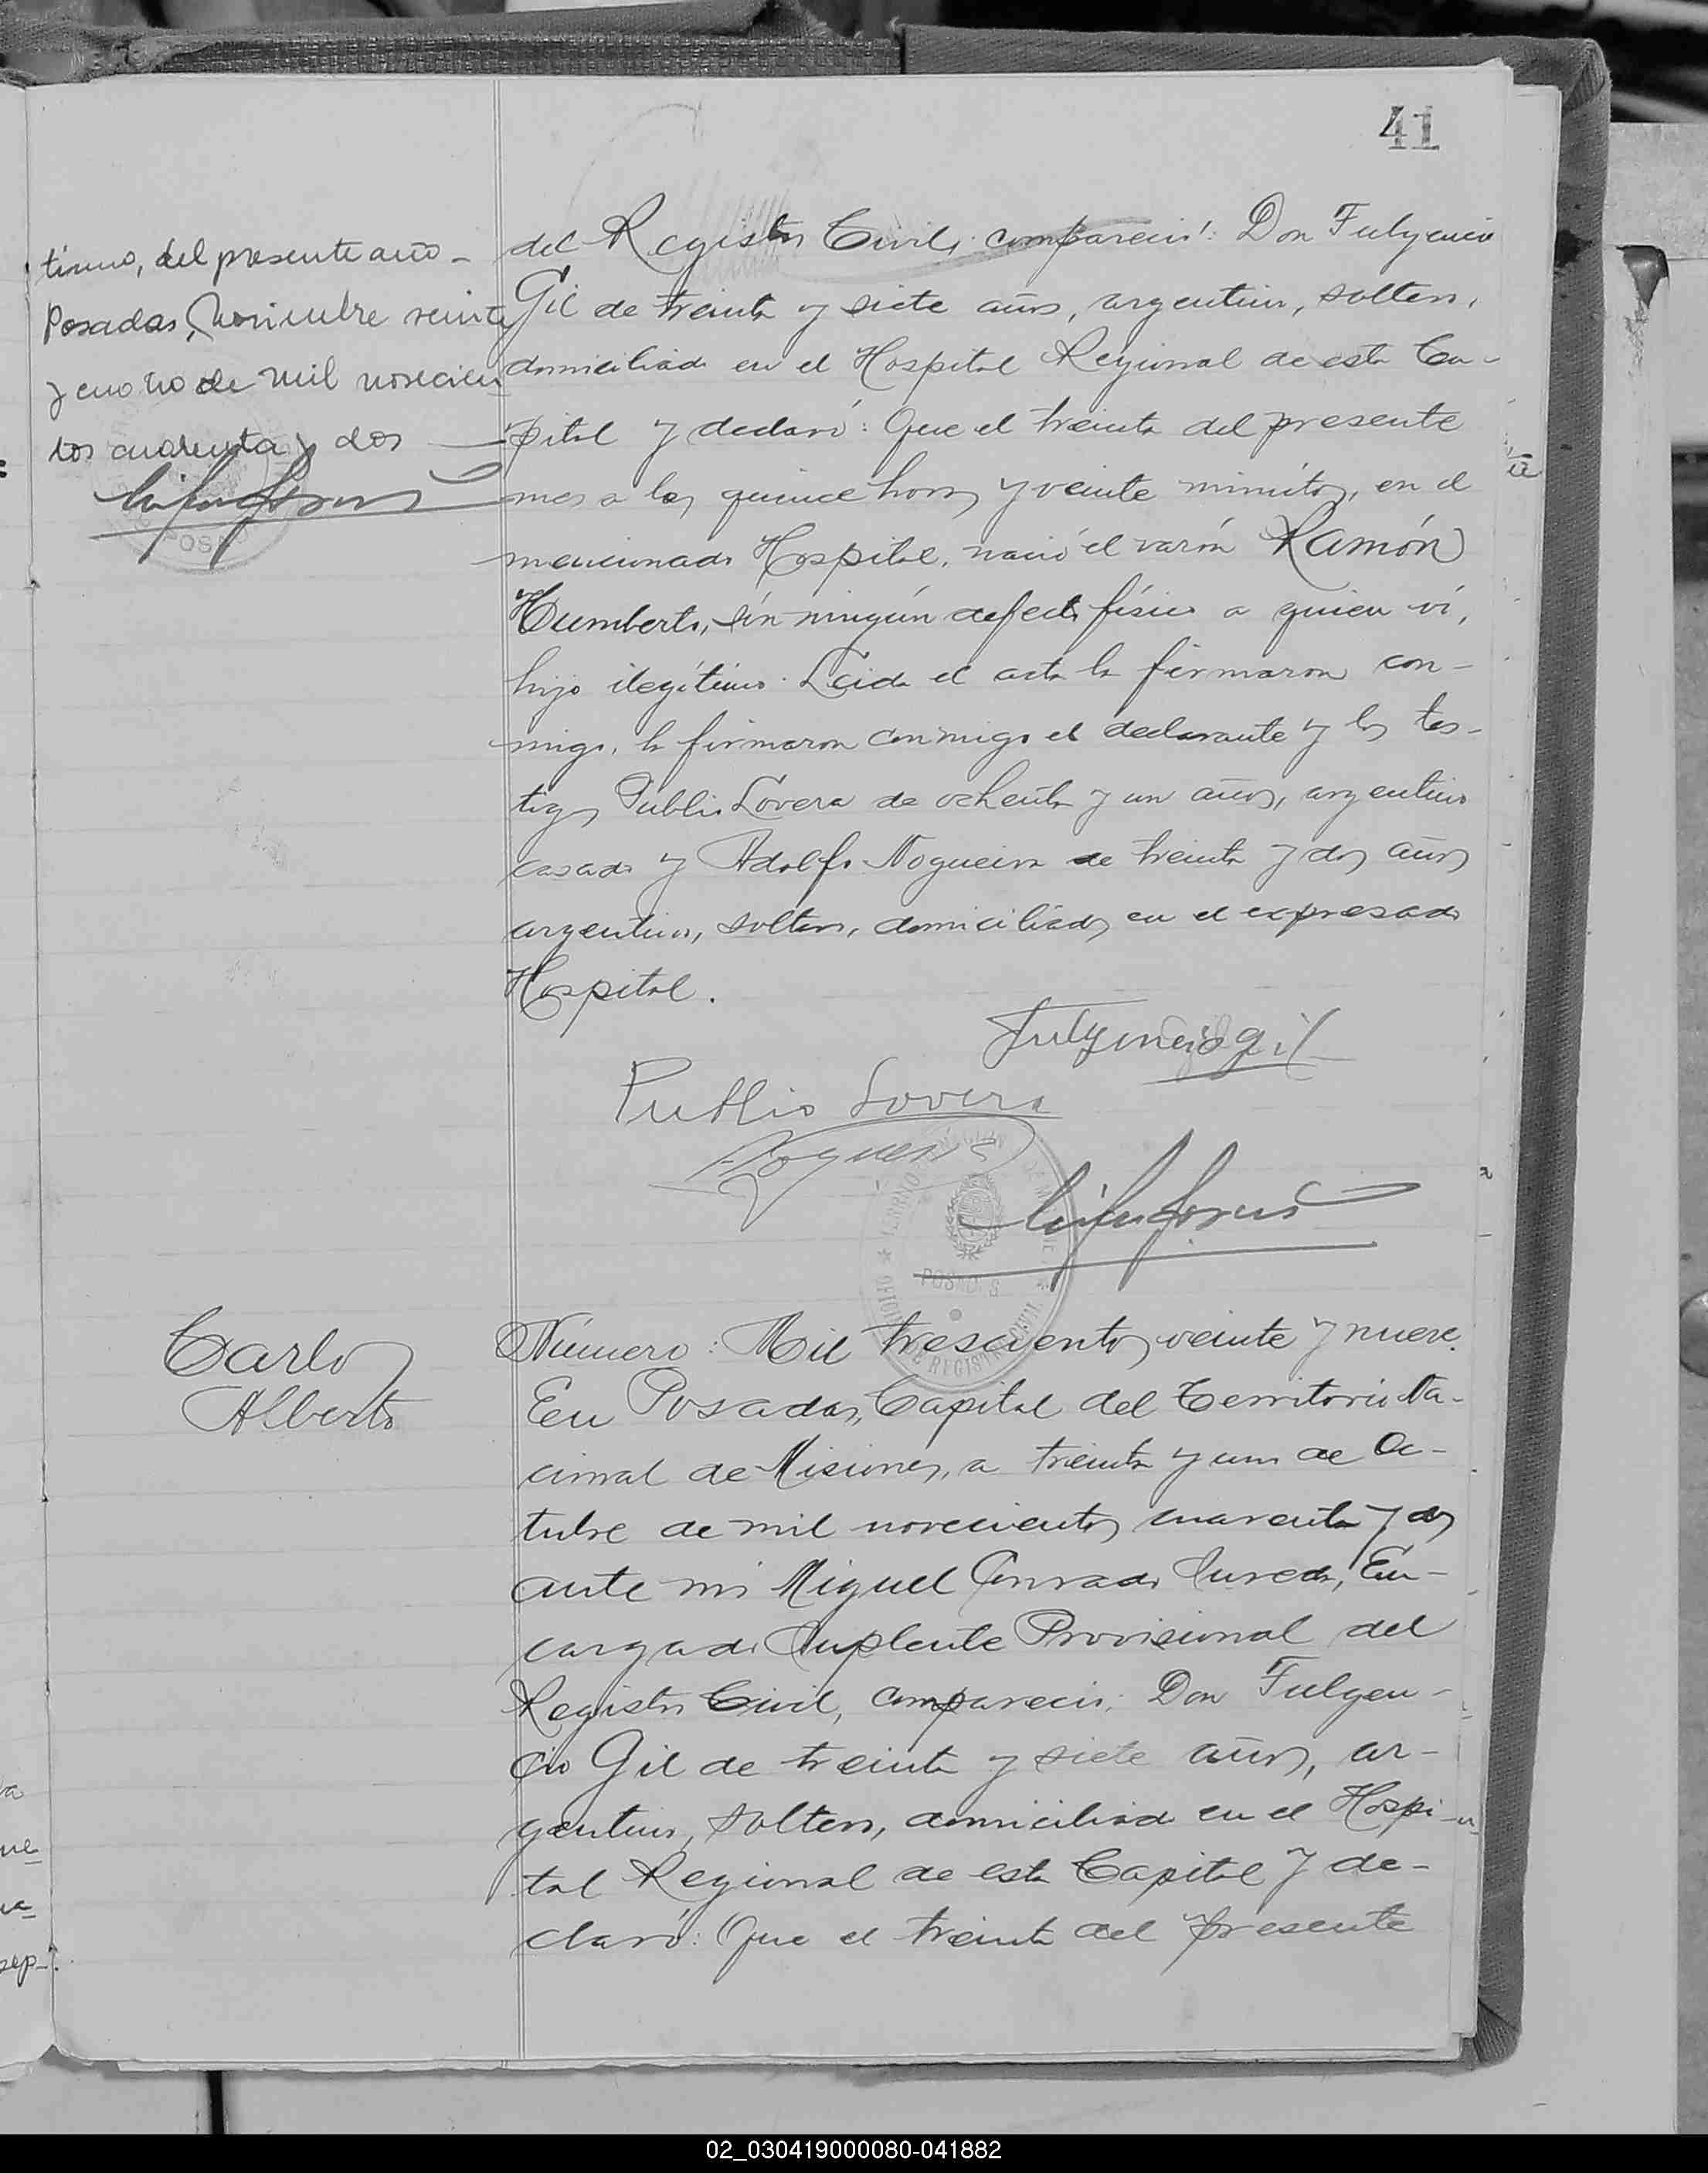 41
timo, del presente año -
Posadas, Noviembre veinte
y cuatro de mil novecien
tos cuarenta y dos
POSA
del Registro Civil, compareció: Don Fulgencio
Gil de treinta y siete años, argentino, soltero,
domiciliado en el Hospital Regional de esta Ca-
pital y declaró: Que el treinta del presente
mes a las quince horas y veinte minutos, en el
mencionado Hospital, nació el varón Ramón
Humberto, sin ningún defecto físico a quien ví,
hijo ilegítimo. Leida el acta la firmaron con-
migo, la firmaron conmigo el declarante y los tes-
tigos Publio Lovera de ochenta y un años, argentino
casado y Adolfo Nogueira de treinta y dos años
argentino, soltero, domiciliados en el expresado
Hospital.
Fulgencio gil
Publio Lovera
POSADAS
DE REGISTRO
Carlos
Alberto
Número: Mil trescientos veinte y nueve.
En Posadas, Capital del Territorio Na-
cional de Misiones, a treinta y uno de Oc-
tubre de mil novecientos cuarenta y dos
ante mi Miguel Conrado , En-
cargado Suplente Provisional del
Registro Civil, compareció: Don Fulgen-
cio Gil de treinta y siete años, ar-
gentino, soltero, domiciliado en el Hospi-
tal Regional de esta Capital y de-
claró: Que el treinta del presente
02_030419000080-041882